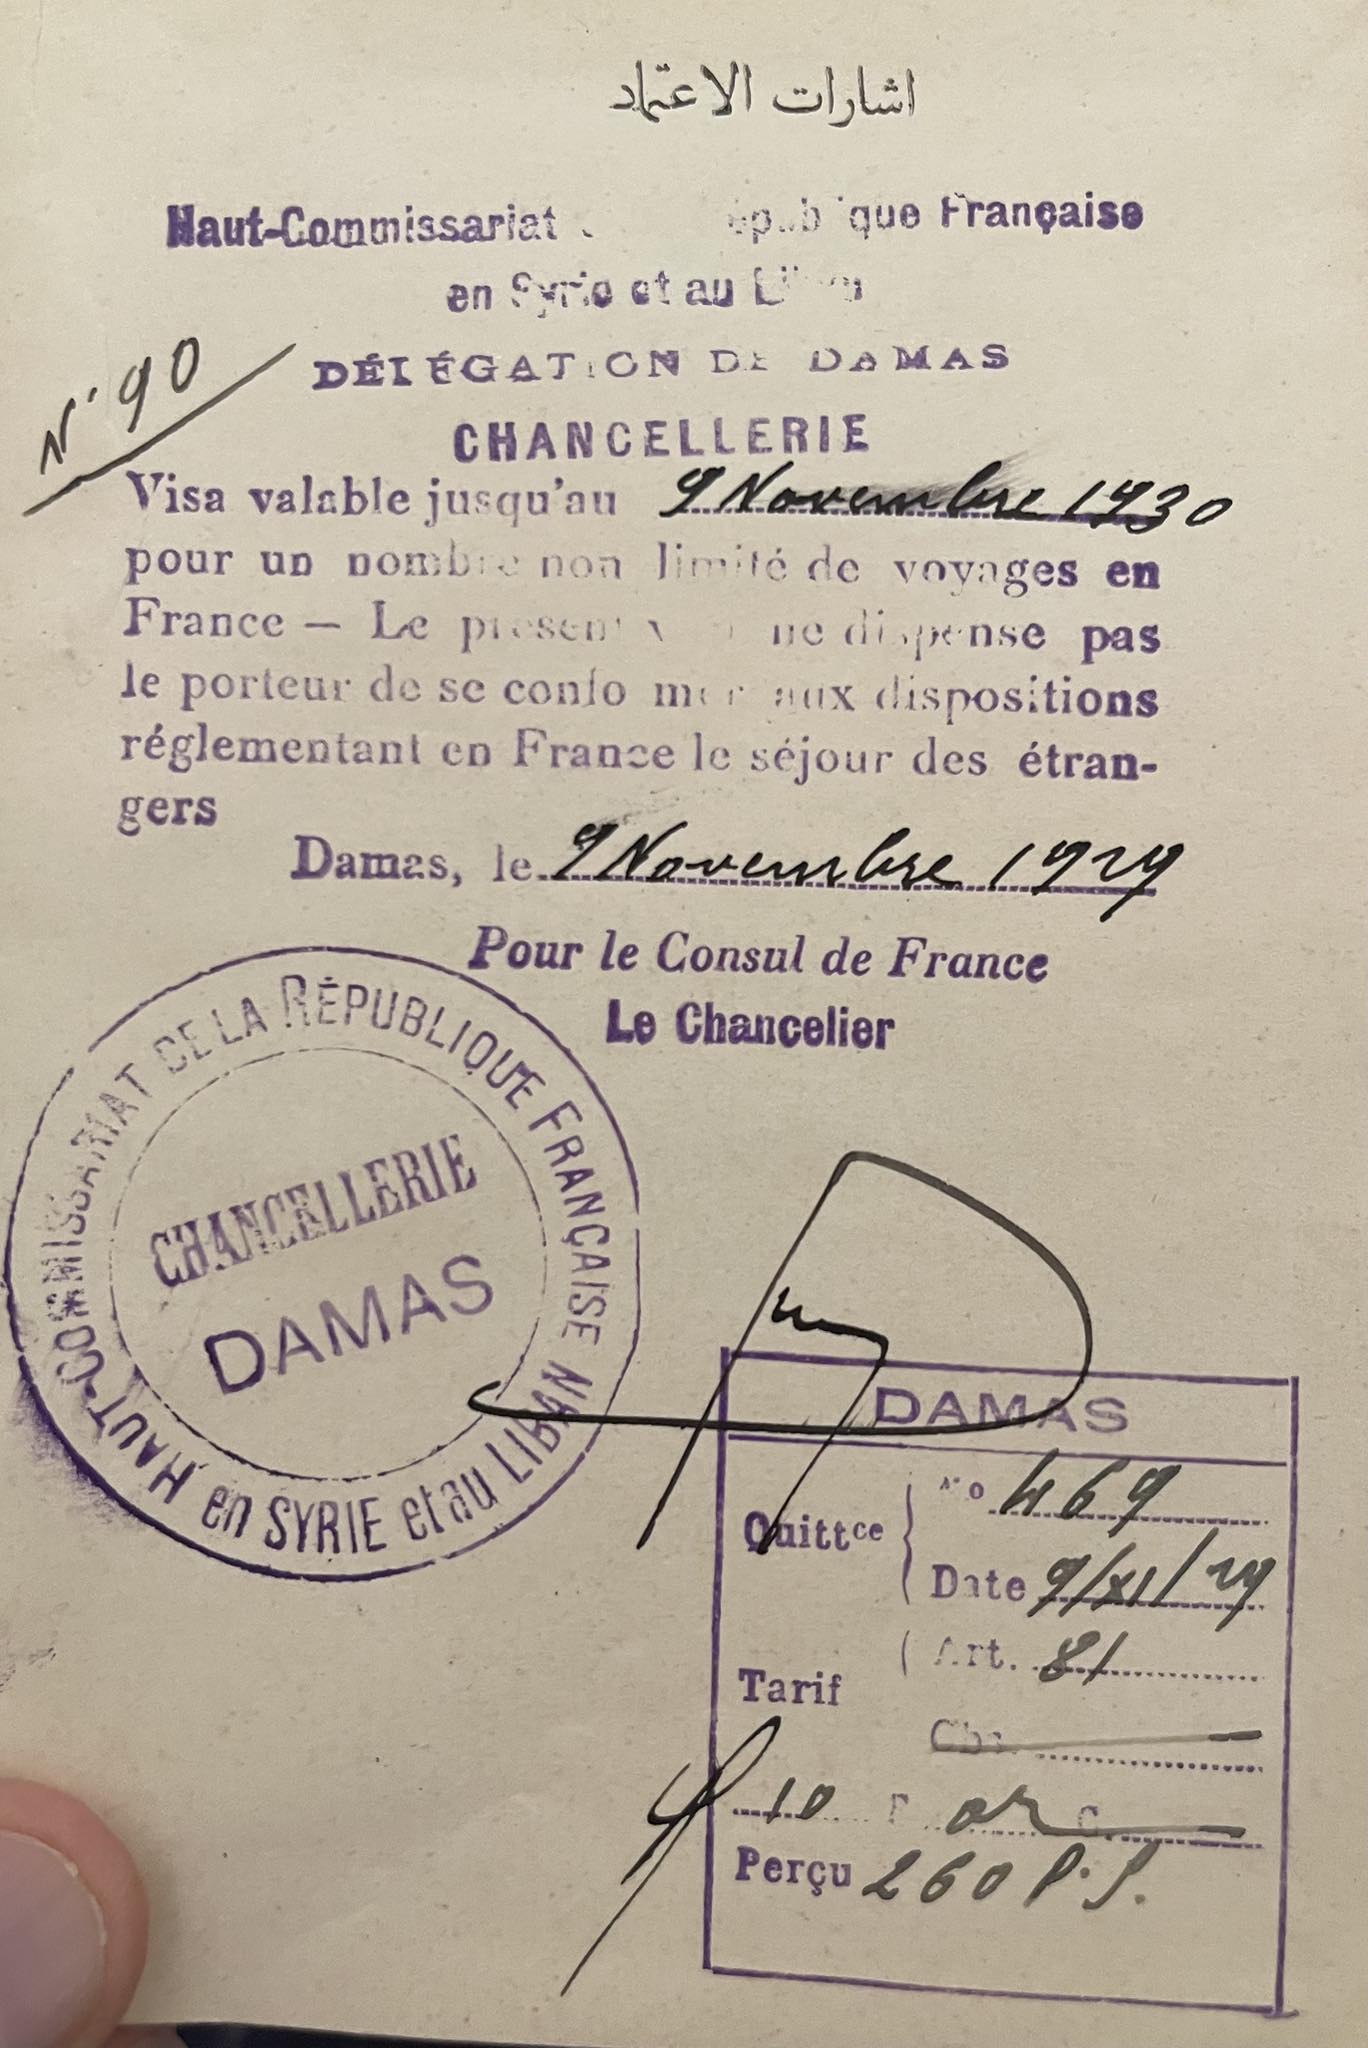 اشارات الاعتماد
Haut-Commissariat République Française
en Syrie et au Liban
DÉLÉGATION DE DAMAS
CHANCELLERIE
N° 90
Visa valable jusqu'au 9 Novembre 1930
pour un nombre non limité de voyages en
France — Le présent visa ne dispense pas
le porteur de se conformer aux dispositions
réglementant en France le séjour des étran-
gers
Damas, le 9 Novembre 1929
Pour le Consul de France
Le Chancelier
HAUT-COMMISSARIAT DE LA RÉPUBLIQUE FRANÇAISE
en SYRIE et au LIBAN
CHANCELLERIE
DAMAS
DAMAS
Quittce No 469
Date 9/XI/29
Tarif Art. 81
10 F or C.
Perçu 260 P.S.